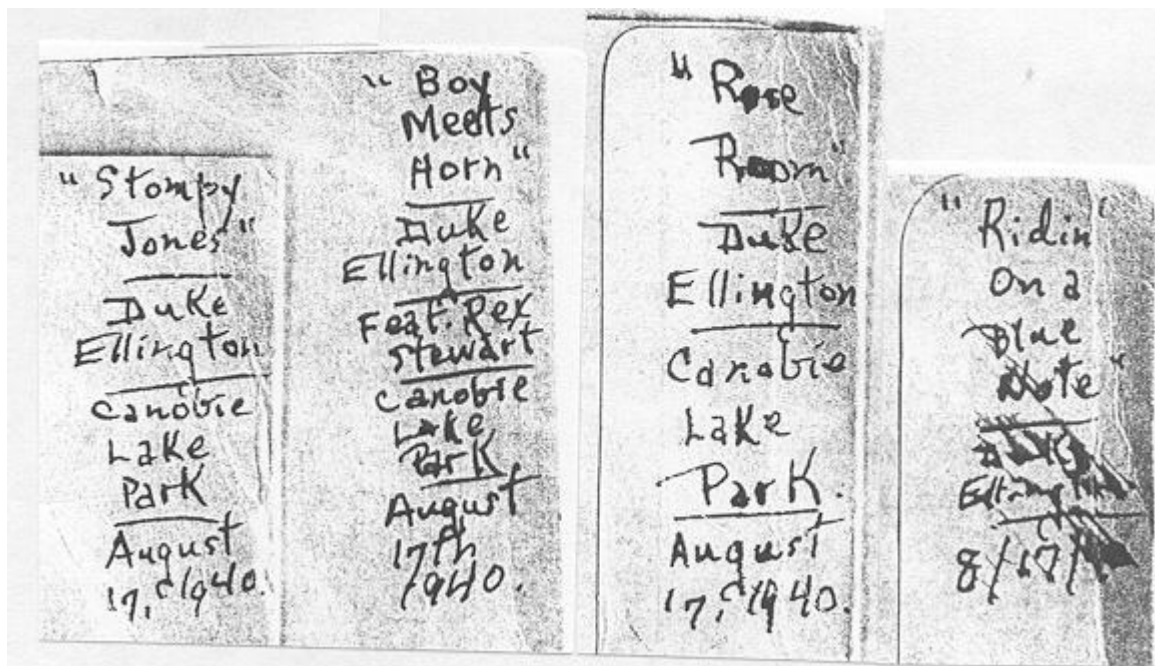 "Stompy
Jones"
Duke
Ellington
Canobie
Lake
Park
August
17, 1940.
"Boy
Meets
Horn"
Duke
Ellington
Feat. Rex
Stewart
Canobie
Lake
Park
August
17th
1940.
"Rose
Room"
Duke
Ellington
Canobie
Lake
Park.
August
17, 1940.
"Ridin'
On a
Blue
Note"
Duke
Ellington
8/17/